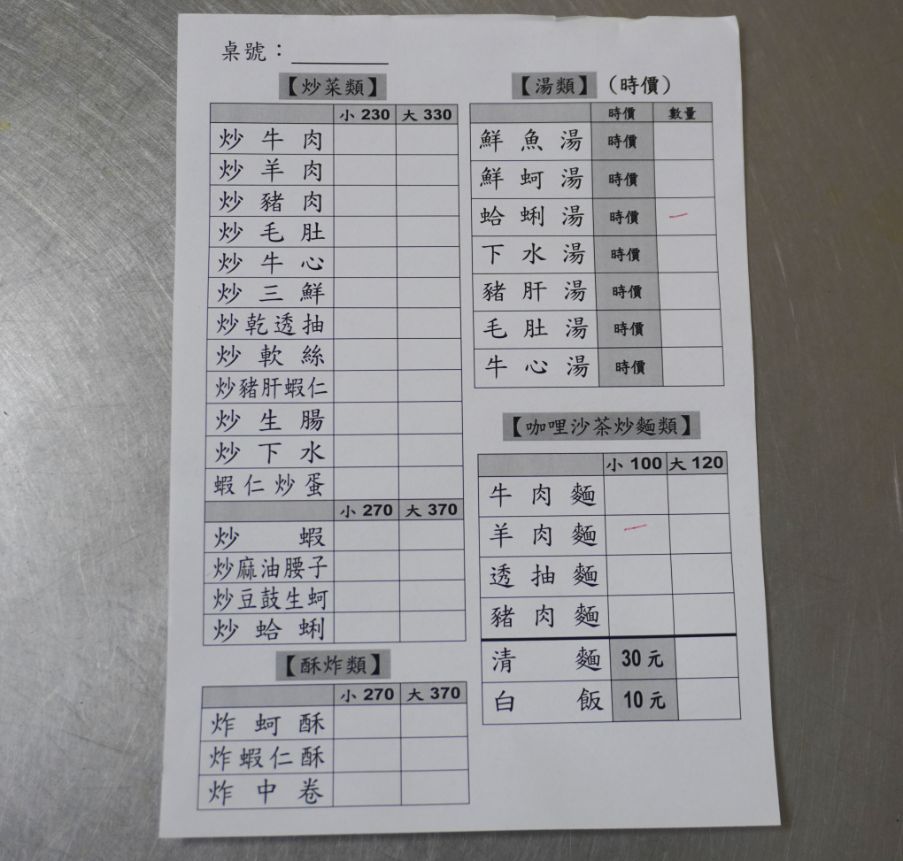 桌號：
【炒菜類】
小 230 大 330
炒牛肉
炒羊肉
炒豬肉
炒毛肚
炒牛心
炒三鮮
炒乾透抽
炒軟絲
炒豬肝蝦仁
炒生腸
炒下水
蝦仁炒蛋
小 270 大 370
炒蝦
炒麻油腰子
炒豆鼓生蚵
炒蛤蜊
【酥炸類】
小 270 大 370
炸蚵酥
炸蝦仁酥
炸中卷
【湯類】（時價）
時價 數量
鮮魚湯 時價
鮮蚵湯 時價
蛤蜊湯 時價 一
下水湯 時價
豬肝湯 時價
毛肚湯 時價
牛心湯 時價
【咖哩沙茶炒麵類】
小 100 大 120
牛肉麵
羊肉麵 一
透抽麵
豬肉麵
清麵 30 元
白飯 10 元